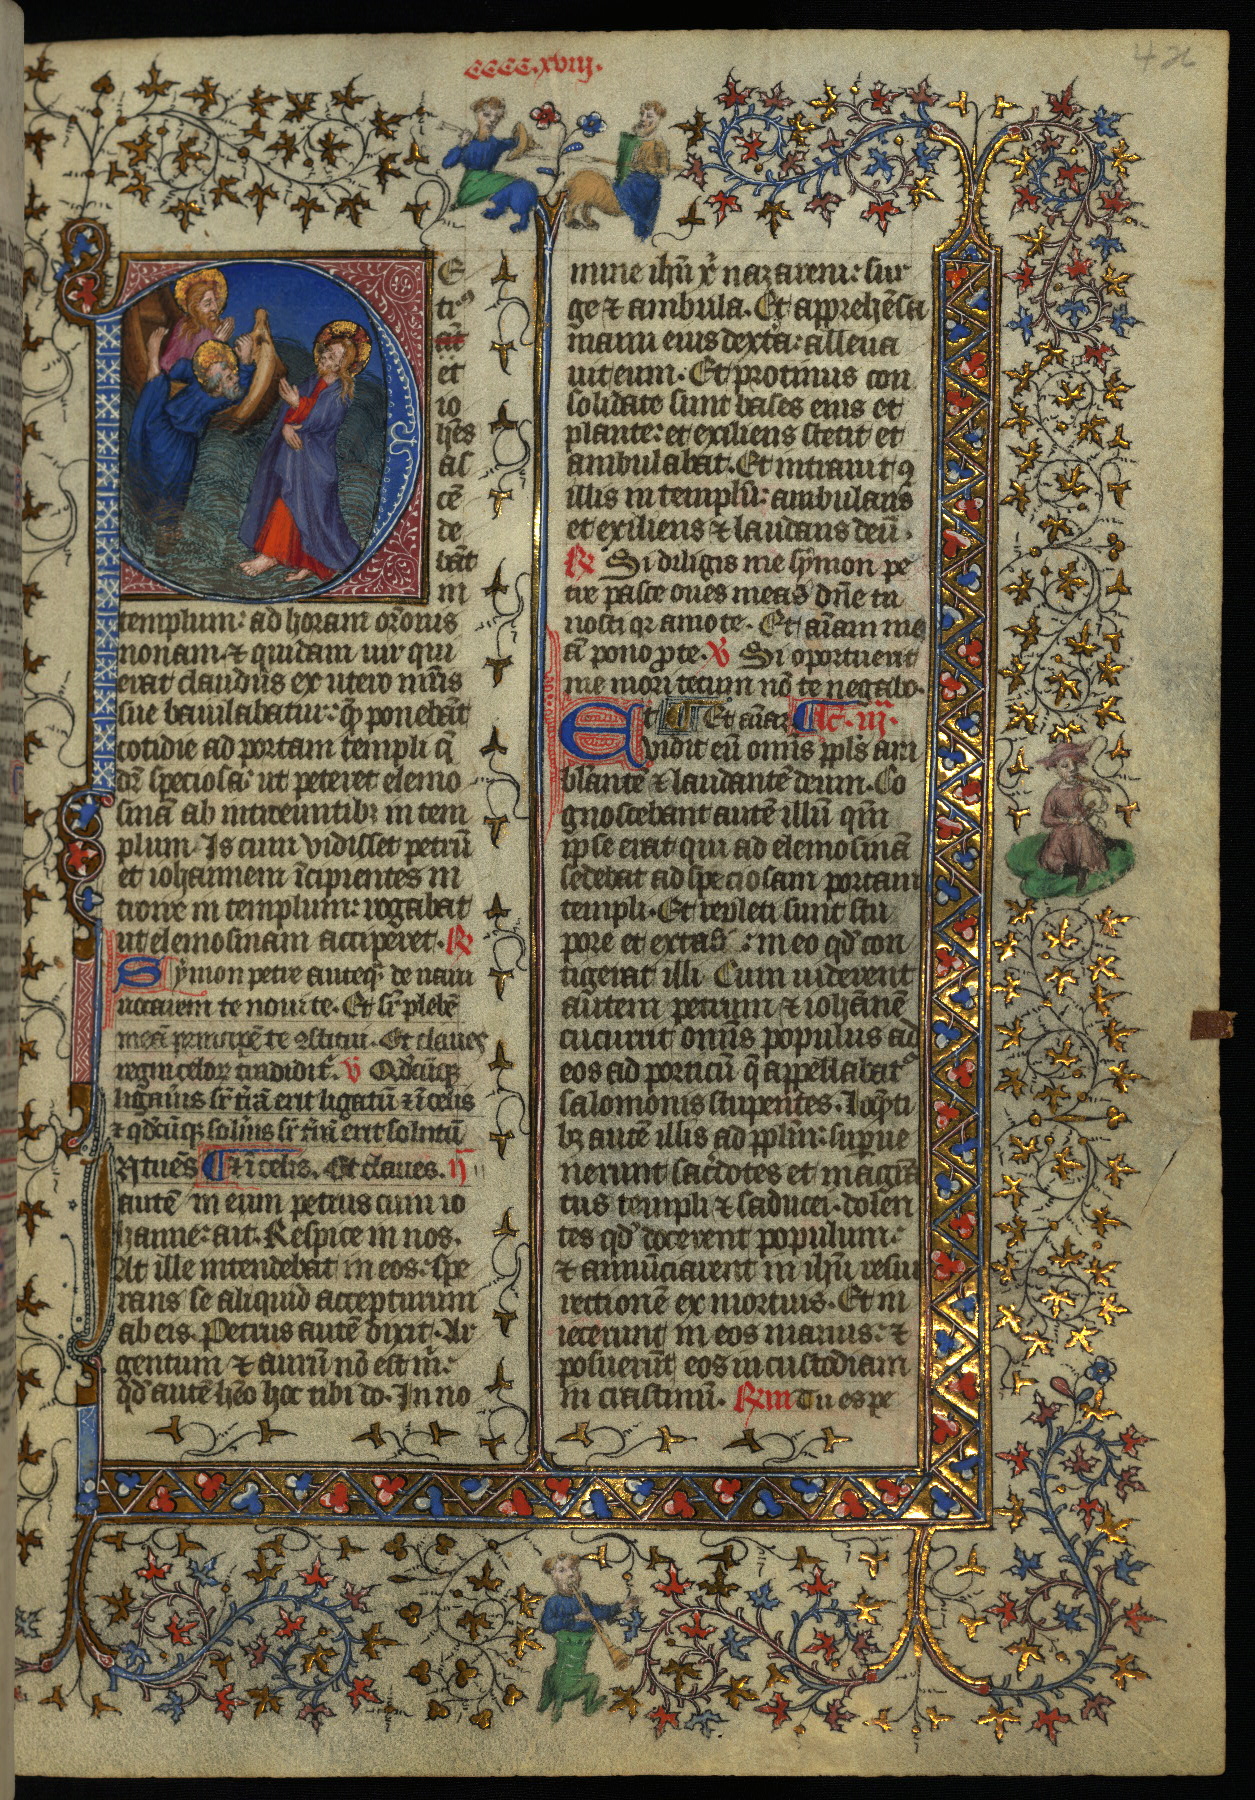 cccc.xviij.
42
E
ti᷒
aūt
et
io
hēs
as
cē
de
bāt
in
templum: ad horam or̄onis
nonam. ⁊ quidam uir qui
erat claudus ex utero mr̄is
sue baiulabatur: quē ponebāt
cotidie ad portam templi q̄
dr̄ speciosa: ut peteret elemo
sinā ab introeuntibꝫ in tem
plum. Is cum vidisset petrū
et iohannem īcipientes in
troire in templum: rogabat
ut elemosinam acciperet. R
Symon petre anteqꝫ de naui
uocarem te noui te. Et sr̄ plebē
meā principē te ꝯstitui. Et claues
regni celoꝝ tradidi t̄. v̄ Qd̄cūqꝫ
ligaūis sr̄ t̄rā erit ligatū ⁊ ī celis
⁊ qd̄cūqꝫ solu̇is sr̄ t̄rā erit solutū
Ituēs Et ī celis. Et claues. ij
autē in eum petrus cum io
hanne: ait. Respice in nos.
At ille intendebat in eos: spe
rans se aliquid accepturum
ab eis. Petrus autē dixit. Ar
gentum ⁊ aurū nō est m̄:
qd̄ autē hēo hoc tibi do. In no
mine ih̄u xp̄ nazareni: sur
ge ⁊ ambula. Et apprehēsa
manu eius dext̄a: alleua
uit eum. Et protinus con
solidate sunt bases eius et
plante: et exiliens stetit et
ambulabat. Et intrauit ꝯ
illis in templū: ambulans
et exiliens ⁊ laudans deū.
R Si diligis me symon pe
tre pasce oues meas dn̄e tu
nosti qr amo te. Et aīam me
ā pono ꝓ te. v̄ Si oportuerit
me mori tecum nō te negabo.
Et Et aīaꝫ Lc̄. iij.
vidit eū omīs ppls am
blantē ⁊ laudantē deum. Co
gnoscebant autē illū qm̄
ipse erat qui ad elemosinā
sedebat ad speciosam portam
templi. Et repleti sunt stu
pore et extasi: in eo qd̄ con
tigerat illi. Cum uiderent
autem petrum ⁊ iohānē
cucurrit omīs populus ad
eos ad porticū q̄ appellabat᷒
salomonis stupentes. Loquēti
bꝫ autē illis ad pplm̄: superue
nerunt sacdotes et magistr̄
tus templi ⁊ saducei. dolen
tes qd̄ docerent populum:
⁊ annūciarent in ih̄u resur
rectionē ex mortuis. Et in
iecerunt in eos manus: ⁊
posuerūt eos in custodiam
in crastinū. Rm Tu es pe